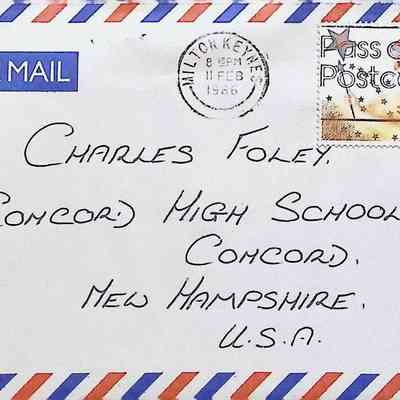 MAIL
MILTON KEYNES
8 PM
11 FEB
1986
Pass o
Postco
CHARLES FOLEY.
CONCORD HIGH SCHOOL
CONCORD.
NEW HAMPSHIRE.
U.S.A.